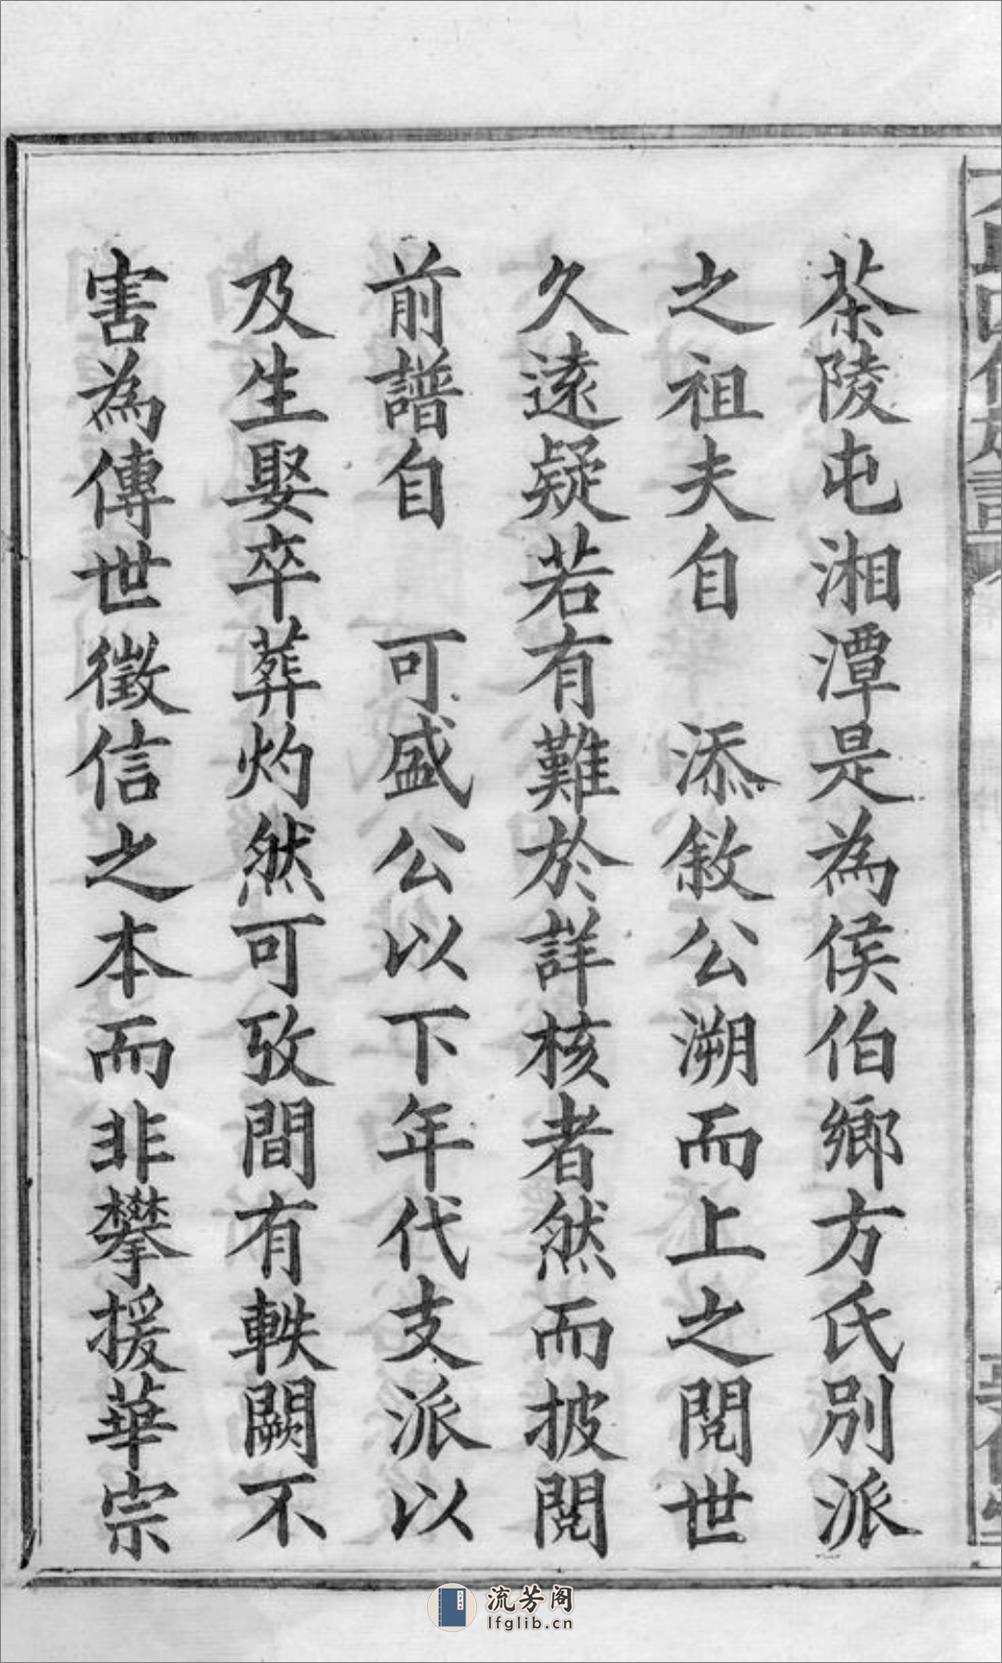 茶陵屯湘潭是為侯伯鄉方氏別派
之祖夫自　添敘公溯而上之閱世
久遠疑若有難於詳核者然而披閱
前譜自　可盛公以下年代支派以
及生娶卒葬灼然可攷間有軼闕不
害為傳世徵信之本而非攀援華宗
流芳阁
lfglib.cn